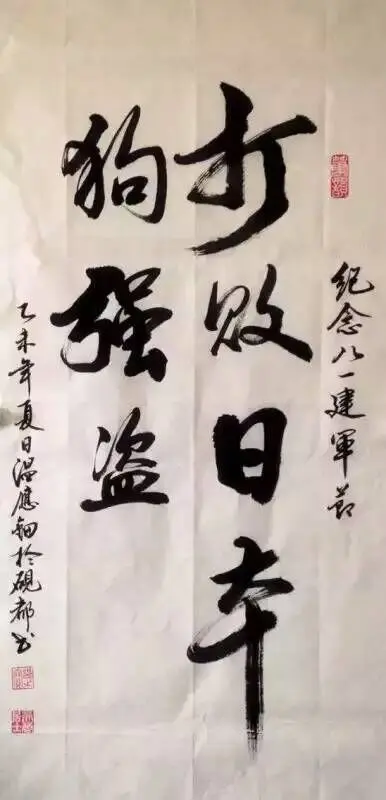 纪念八一建軍節
打败日本
狗强盗
乙未年夏日温應钿於硯都书